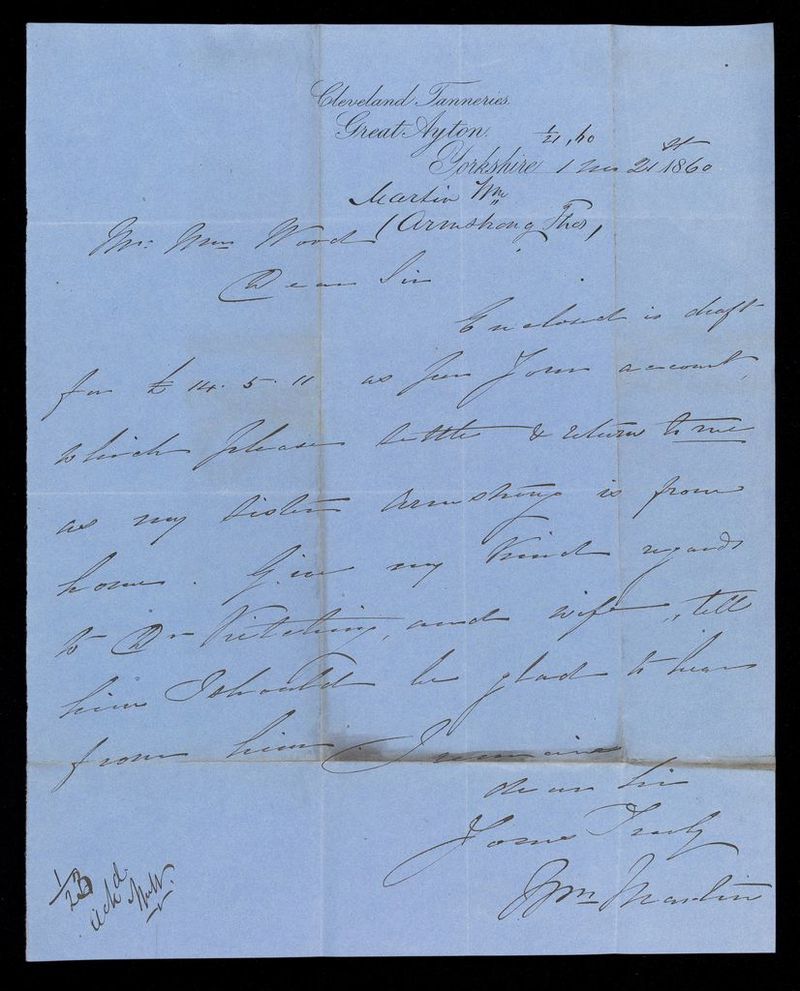 Cleveland Tanneries.
Great Ayton.
1/21, 60
Yorkshire 1 mo 21st 1860
Martin Wm
(Armstrong Thos,
Mr. Wm Wood
Dear Sir
Enclosed is draft
for £ 14. 5. 11 as per Your account,
which please settle & return to me
as my sister Armstrong is from
home. Give my Kind regards
to Dr Kitching, and wife, tell
him I should be glad to hear
from him. I remain
dear Sir
Yours Truly
Wm Martin
1/23
ackd